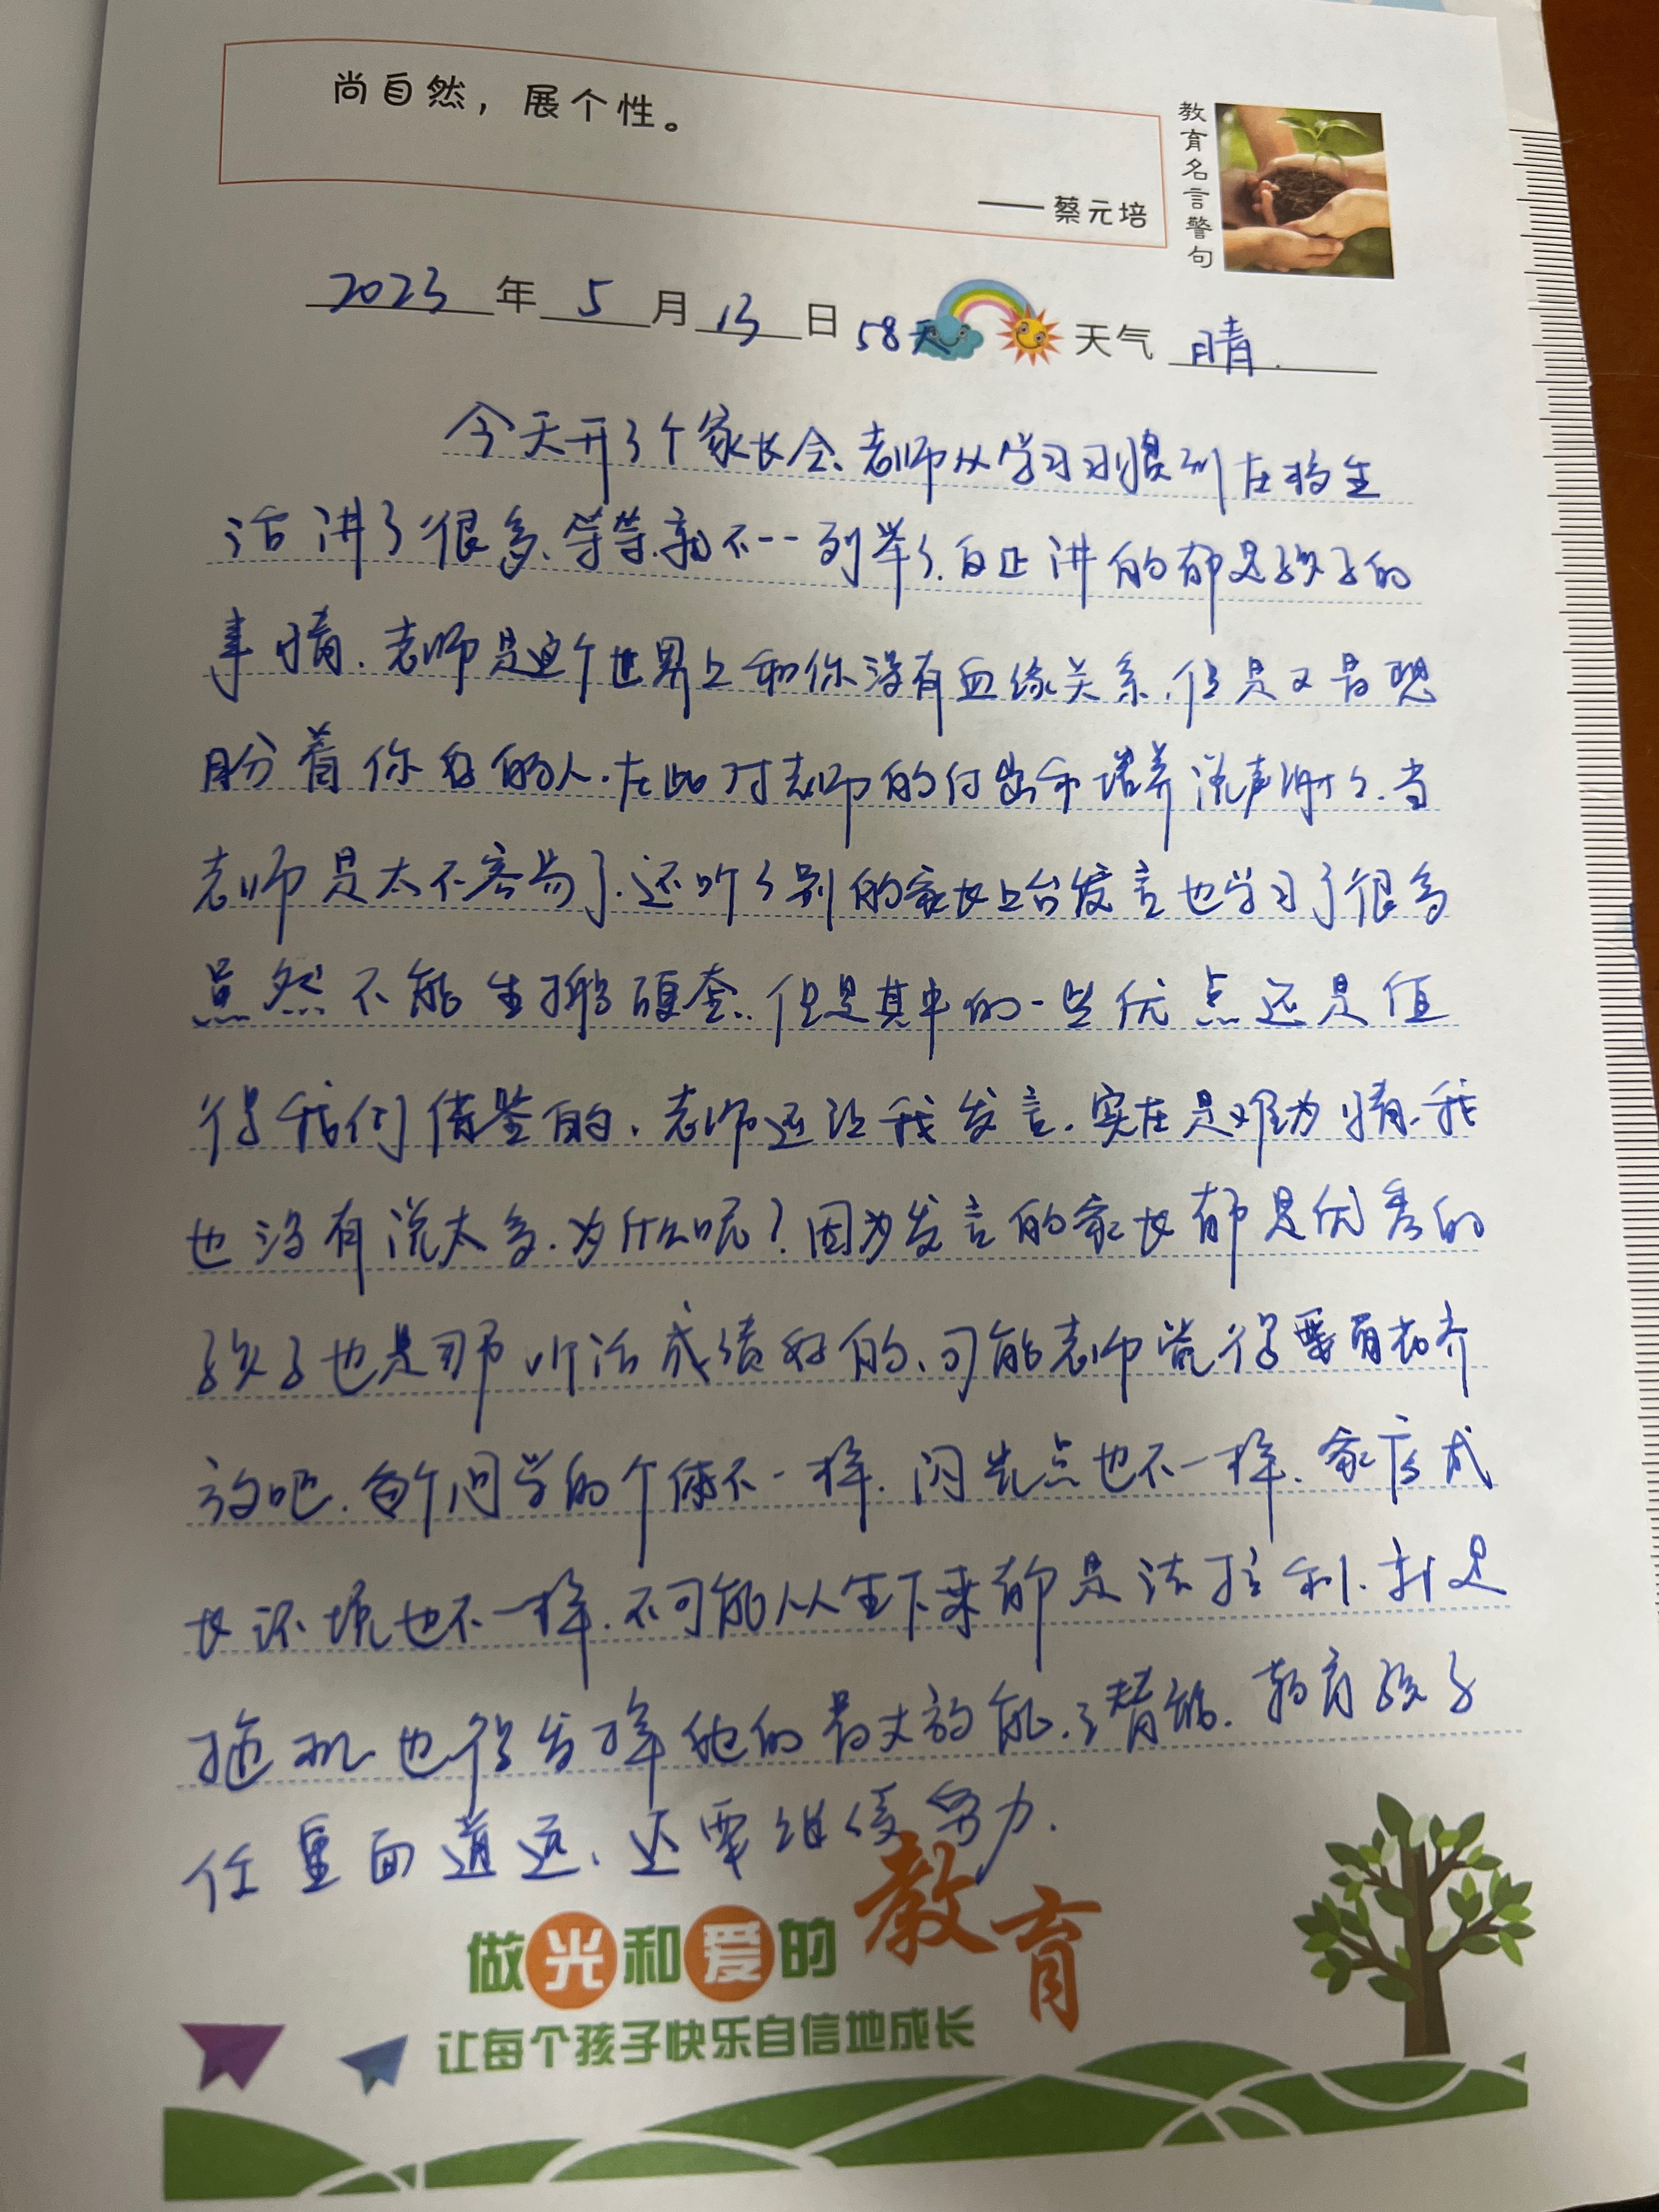 尚自然，展个性。
——蔡元培
教育名言警句
2023年5月13日 58天 天气 晴.
今天开了个家长会、老师从学习习惯到在校生
活讲了很多、等等.就不一一列举了.反正讲的都是孩子的
事情.老师是这个世界上和你没有血缘关系.但是又最想
盼着你好的人.在此对老师的付出和培养说声谢谢.当
老师是太不容易了.还听了别的家长上台发言也学习了很多
虽然不能生搬硬套.但是其中的一些优点还是值
得我们借鉴的、老师还让我发言.实在是难为情.我
也没有说太多.为什么呢？因为发言的家长都是优秀的
孩子也是那听话成绩好的、可能老师觉得要百花齐
放吧.每个同学的个体不一样.闪光点也不一样.家庭成
长环境也不一样.不可能从生下来都是法拉利.就是
拖拉机也得发挥他的最大效能.潜能.教育孩子
任重而道远、还要继续努力.
做光和爱的教育
让每个孩子快乐自信地成长